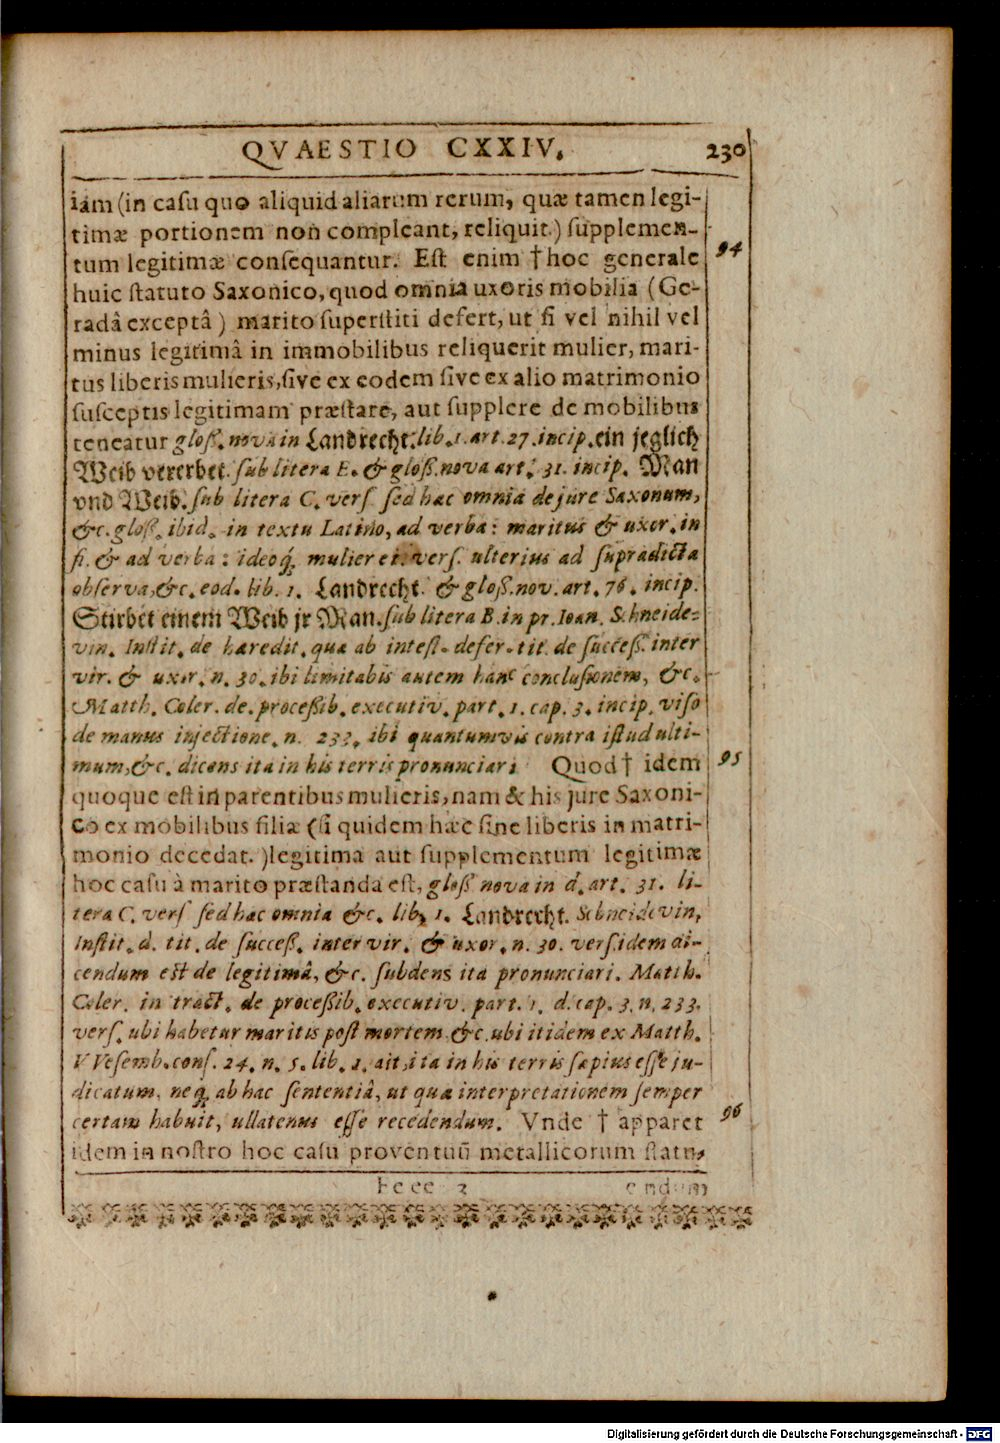 QVAESTIO CXXIV. 230
iam (in casu quo aliquid aliarum rerum, quæ tamen legi-
timæ portionem non compleant, reliquit) supplemen-
tum legitimæ consequantur. Est enim † hoc generale 94
huic statuto Saxonico, quod omnia uxoris mobilia (Ge-
radâ exceptâ) marito superstiti defert, ut si vel nihil vel
minus legitimâ in immobilibus reliquerit mulier, mari-
tus liberis mulieris, sive ex eodem sive ex alio matrimonio
susceptis legitimam præstare, aut supplere de mobilibus
teneatur gloß. nova in Landrecht. lib. 1. art. 27. incip. ein jeglich
Weib vererbet. sub litera E. & gloß. nova art. 31. incip. Man
vnd Weib. sub litera C. vers sed hac omnia de jure Saxonum,
&c. gloß. ibid. in textu Latino, ad verba: maritus & uxor. in
fi. & ad verba: ideoq́; mulier et. vers. ulterius ad supradicta
observa, &c. eod. lib. 1. Landrecht. & gloß. nov. art. 76. incip.
Stirbet einem Weib jr Man. sub litera B. in pr. Ioan. Schneide-
vin. Instit. de hæredit. qua ab intest. defer. tit. de succeß. inter
vir. & uxor. n. 30. ibi limitabis autem hanc conclusionem, &c.
Matth. Coler. de. proceßib. executiv. part. 1. cap. 3. incip. viso
de manus injectione. n. 233. ibi quantumvis contra istud ulti-
mum, &c. dicens ita in his terris pronunciari. Quod † idem 95
quoque est in parentibus mulieris, nam & his jure Saxoni-
co ex mobilibus filiæ (si quidem hæc sine liberis in matri-
monio decedat.) legitima aut supplementum legitimæ
hoc casu à marito præstanda est, gloß nova in d. art. 31. li-
tera C. vers sed hac omnia &c. lib. 1. Landrecht. Schneidevin,
Instit. d. tit. de succeß. inter vir. & uxor. n. 30. vers. idem di-
cendum est de legitimâ, &c. subdens ita pronunciari. Matth.
Coler. in tract. de proceßib. executiv. part. 1. d. cap. 3. n. 233.
vers. ubi habetur maritis post mortem &c. ubi itidem ex Matth.
VVesemb. cons. 24. n. 5. lib. 1. ait, ita in his terris sæpius esse ju-
dicatum, neq́; ab hac sententiâ, ut qua interpretationem semper
certam habuit, ullatenus esse recedendum. Vnde † apparet 96
idem in nostro hoc casu proventuũ metallicorum statu-
Ee ee 2 endum
Digitalisierung gefördert durch die Deutsche Forschungsgemeinschaft - DFG